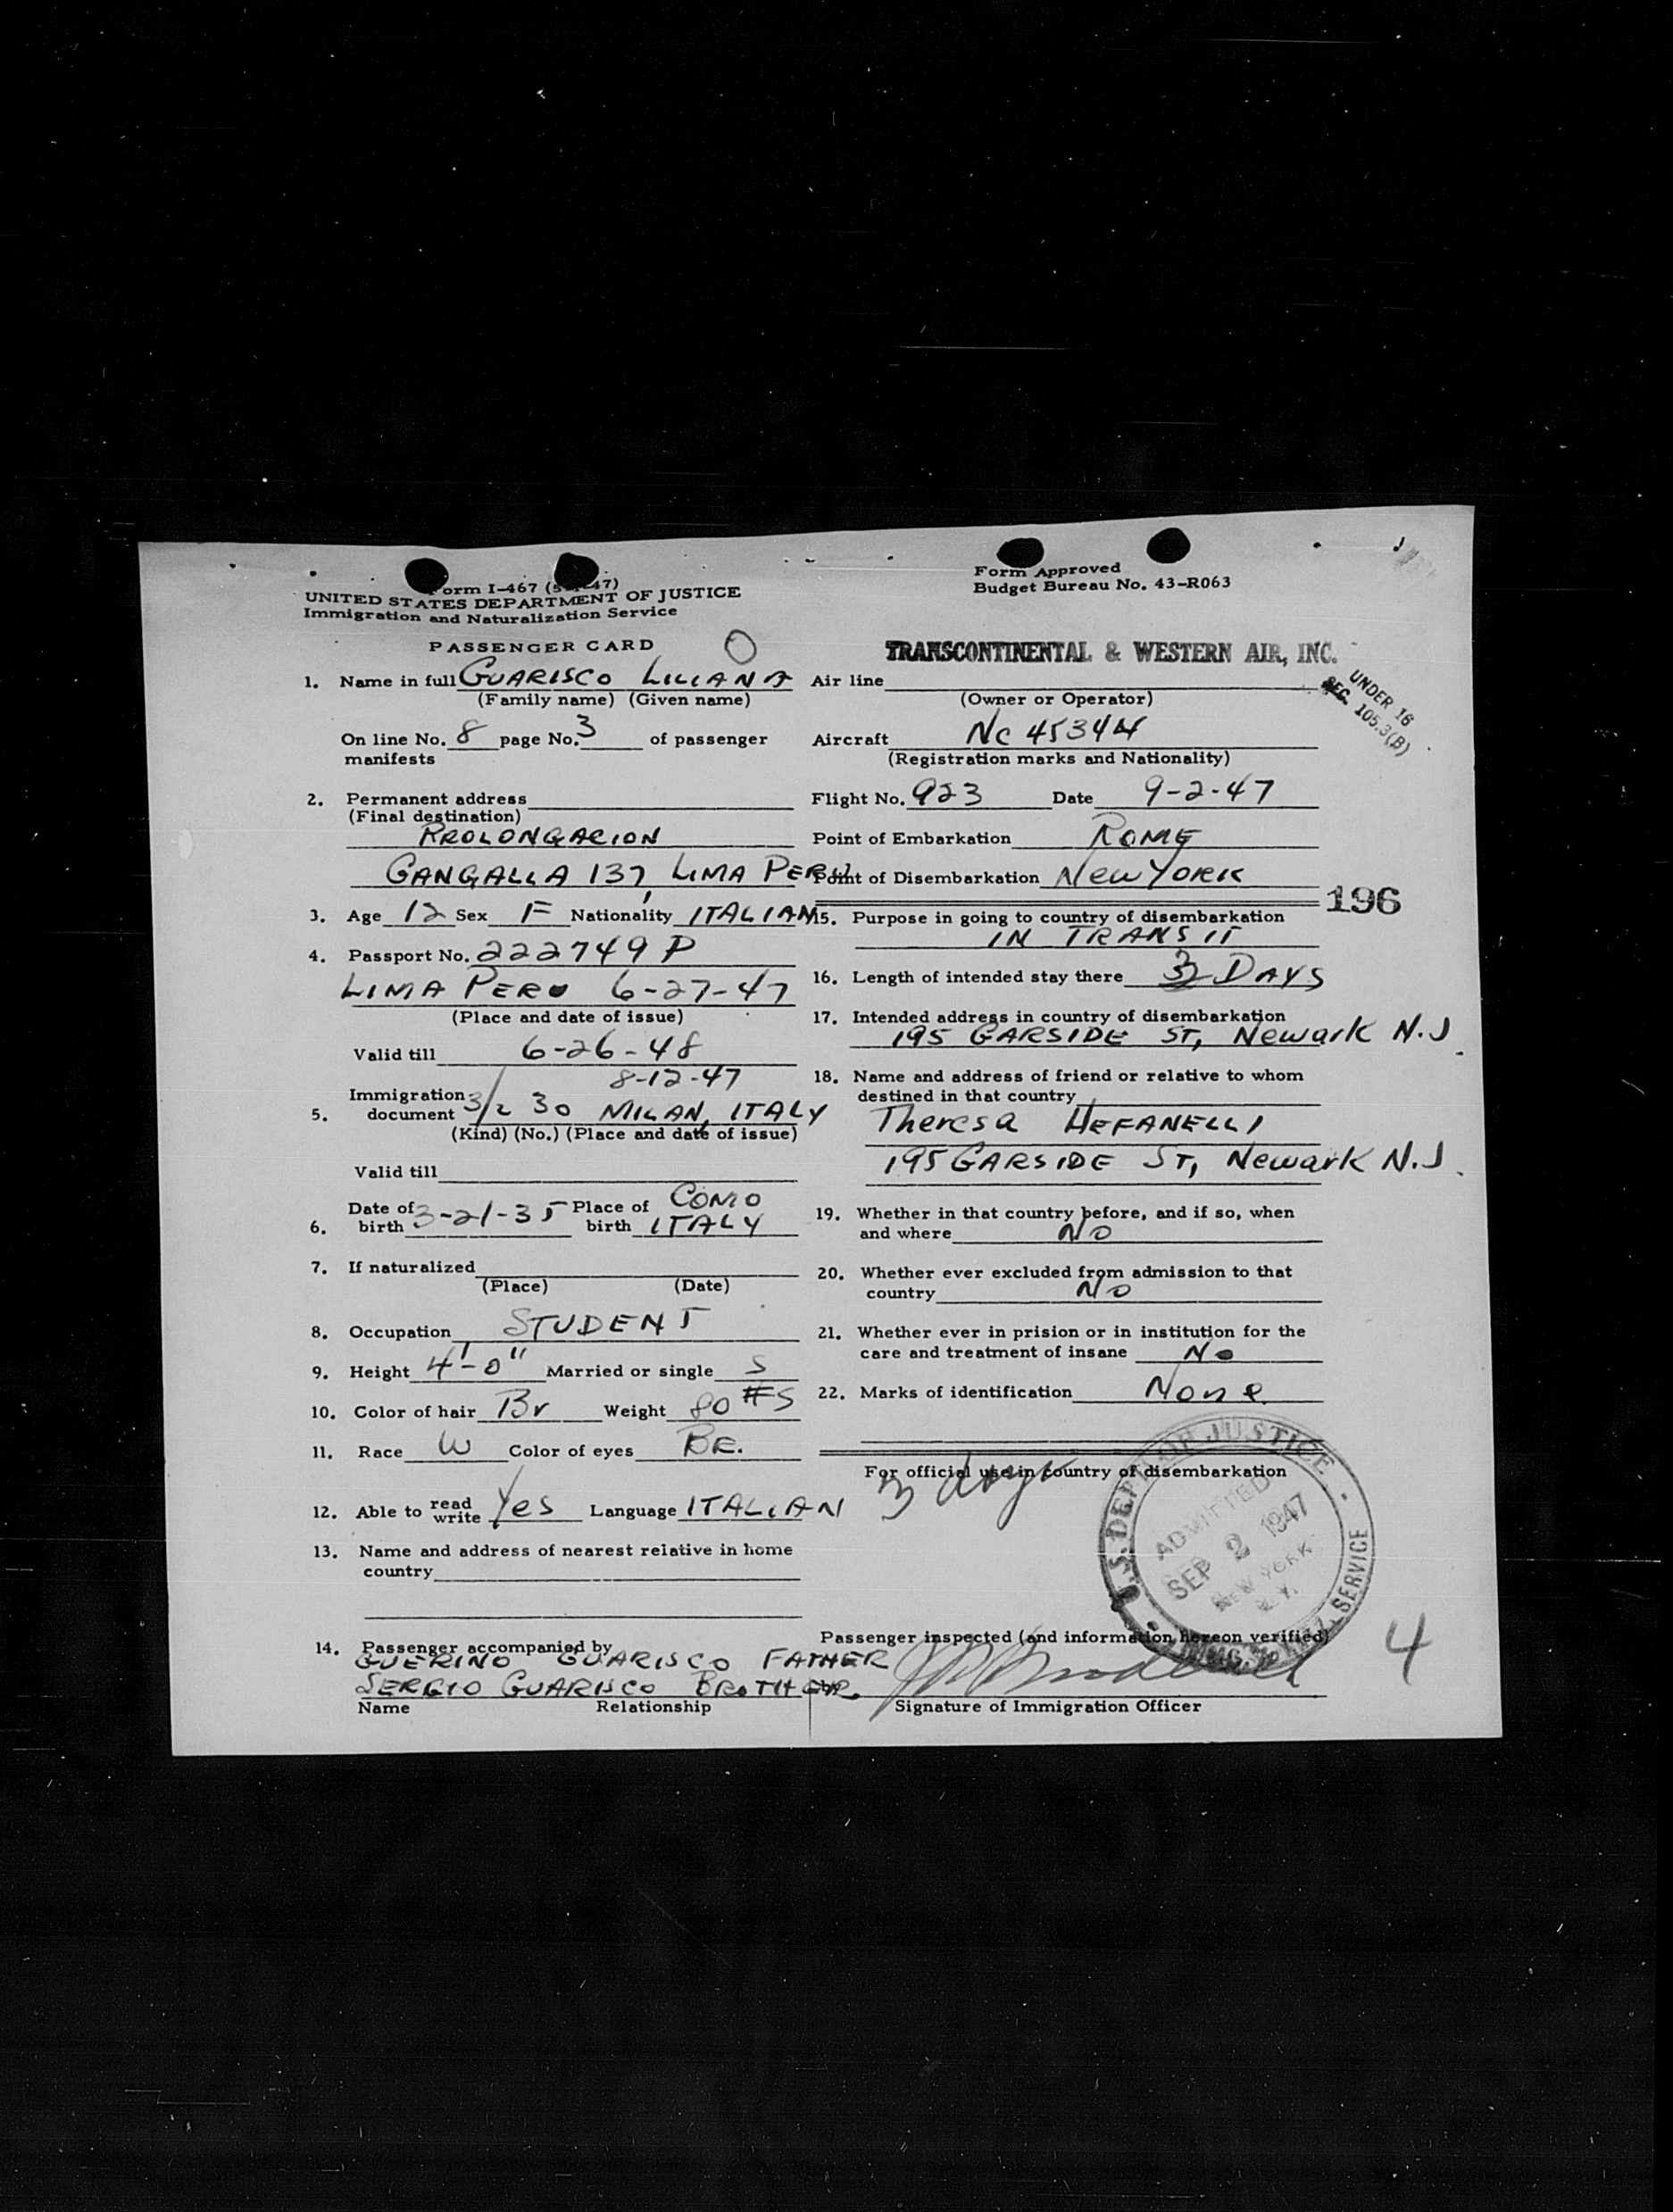 Form I-467 (5-1-47)
UNITED STATES DEPARTMENT OF JUSTICE
Immigration and Naturalization Service
PASSENGER CARD
1. Name in full GUARISCO LILIANA
(Family name) (Given name)
On line No. 8 page No. 3 of passenger
manifests
2. Permanent address
(Final destination)
PROLONGACION
GANGALLA 137, LIMA PERU
3. Age 12 Sex F Nationality ITALIAN
4. Passport No. 222749 P
LIMA PERU 6-27-47
(Place and date of issue)
Valid till 6-26-48
8-12-47
5. Immigration document 3/2 30 MILAN, ITALY
(Kind) (No.) (Place and date of issue)
Valid till
6. Date of birth 3-21-35 Place of birth COMO ITALY
7. If naturalized
(Place) (Date)
8. Occupation STUDENT
9. Height 4'-0" Married or single S
10. Color of hair Br Weight 80 #S
11. Race W Color of eyes BE.
12. Able to read write Yes Language ITALIAN
13. Name and address of nearest relative in home
country
14. Passenger accompanied by
GUERINO GUARISCO FATHER
SERGIO GUARISCO BROTHER
Name Relationship
Form Approved
Budget Bureau No. 43-R063
TRANSCONTINENTAL & WESTERN AIR, INC.
Air line
(Owner or Operator)
UNDER 16
SEC. 105.3(B)
Aircraft NC 45344
(Registration marks and Nationality)
Flight No. 923 Date 9-2-47
Point of Embarkation ROME
Point of Disembarkation New YORK
196
15. Purpose in going to country of disembarkation
IN TRANSIT
16. Length of intended stay there 3 DAYS
17. Intended address in country of disembarkation
195 GARSIDE ST, Newark N.J.
18. Name and address of friend or relative to whom
destined in that country
Theresa HEFANELLI
195 GARSIDE ST, Newark N.J.
19. Whether in that country before, and if so, when
and where NO
20. Whether ever excluded from admission to that
country NO
21. Whether ever in prision or in institution for the
care and treatment of insane No
22. Marks of identification None
For official use in country of disembarkation
3 days
U.S. DEPT. OF JUSTICE
ADMITTED
SEP 2 1947
NEW YORK
N.Y.
SERVICE
Passenger inspected (and information hereon verified)
4
Signature of Immigration Officer